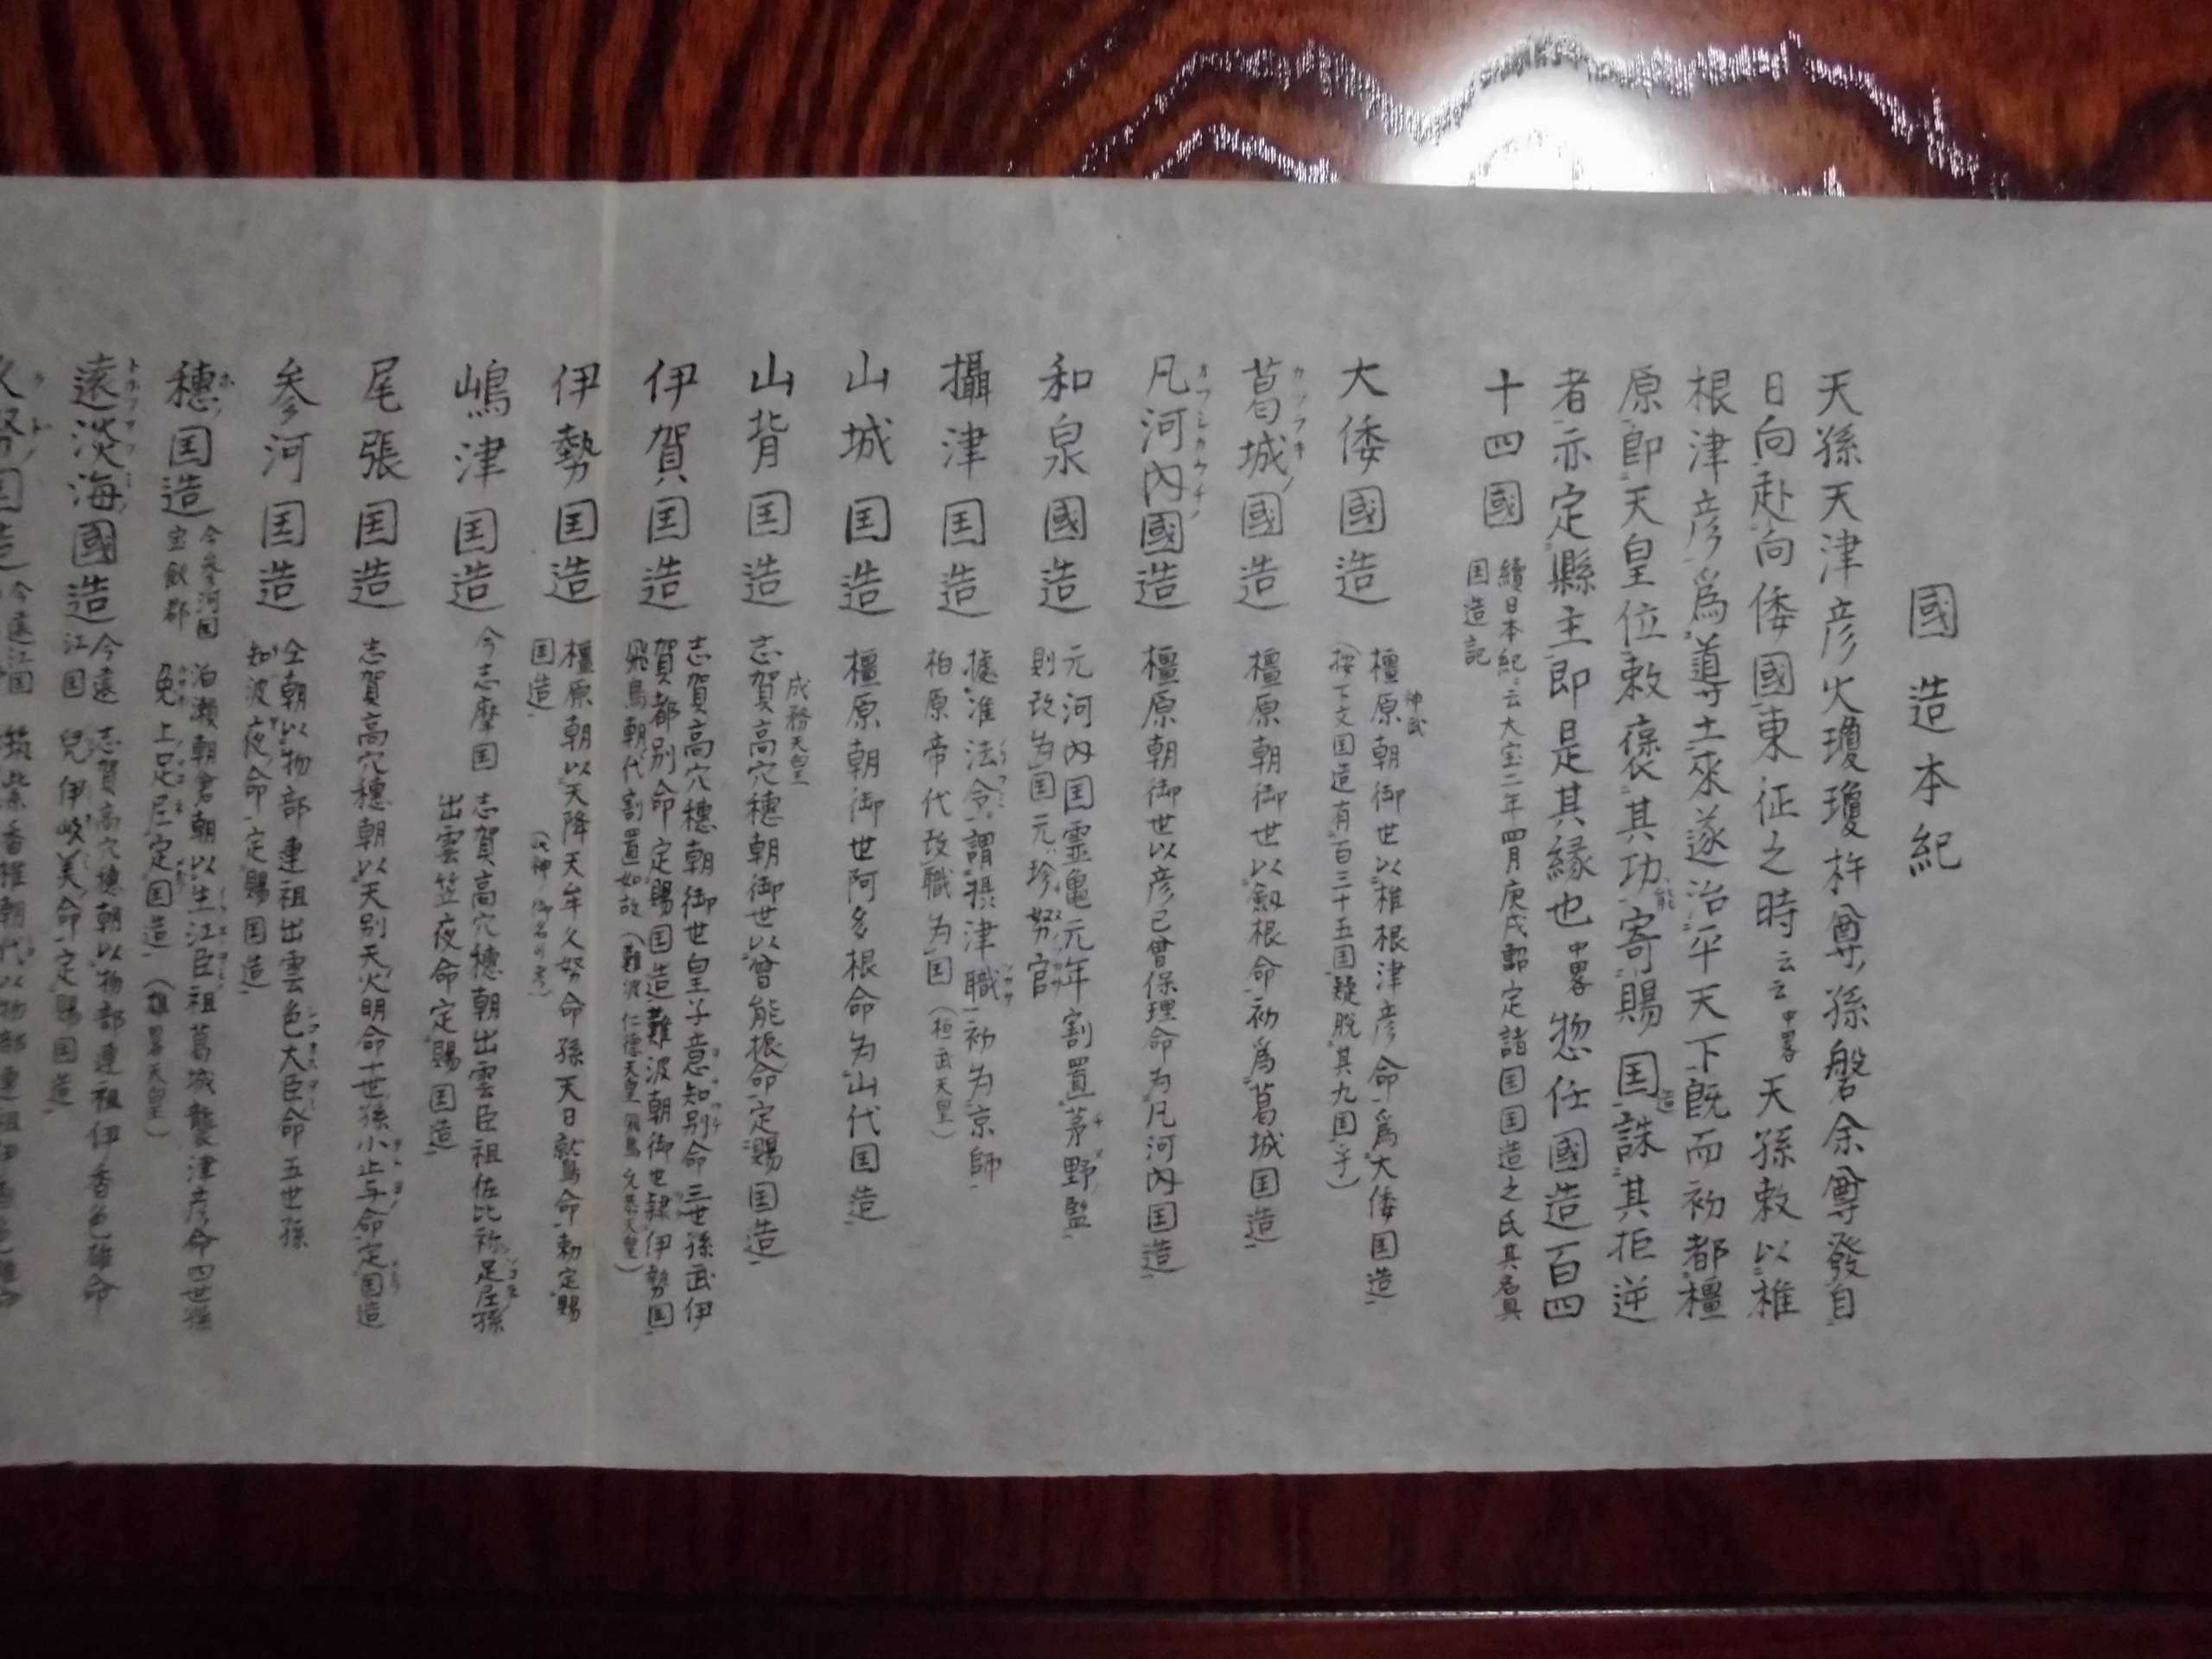 國造本紀
天孫天津彦火瓊瓊杵尊孫磐余尊發自
日向赴向倭國東征之時云云中畧天孫敕以椎
根津彦爲導士來遂治平天下既而初都橿
原即天皇位敕褒其功能寄賜国造誅其拒逆
者亦定縣主即是其緣也中畧惣任國造百四
十四國
續日本紀云大宝二年四月庚戌詔定諸国国造之氏其名具
国造記
大倭國造
神武
橿原朝御世以椎根津彦命爲大倭国造
(按下文国造有百三十五国疑脱其九国乎)
カツラキノ
葛城國造 橿原朝御世以劔根命初爲葛城国造
オフシカウチノ
凡河内國造 橿原朝御世以彦己曾保理命为凡河内国造
和泉國造
元河内国霊亀元年割置茅野監
則改为国元珍努官
攝津国造
據准法令謂摂津職初为京師
柏原帝代改職为国(桓武天皇)
山城国造 橿原朝御世阿多根命为山代国造
山背国造
成務天皇
志賀高穴穂朝御世以曾能振命定賜国造
伊賀国造
志賀高穴穂朝御世皇子意知別命三世孫武伊
賀都別命定賜国造難波朝御世隷伊勢国
飛鳥朝代割置如故(難波仁徳天皇 飛鳥允恭天皇)
伊勢国造
橿原朝以天降天牟久努命孫天日鷲命勅定賜
国造
嶋津国造 今志摩国
志賀高穴穂朝出雲臣祖佐比祢足尼孫
出雲笠夜命定賜国造
尾張国造 志賀高穴穂朝以天別天火明命十世孫小止与命定国造
参河国造
仝朝以物部連祖出雲色大臣命五世孫
知波夜命定賜国造
穂国造
今参河国
宝飫郡
泊瀬朝倉朝以生江臣祖葛城襲津彦命四世孫
菟上足尼定国造(雄畧天皇)
遠淡海國造
今遠
江国
志賀高穴穂朝以物部連祖伊香色雄命
兒伊岐美命定賜国造